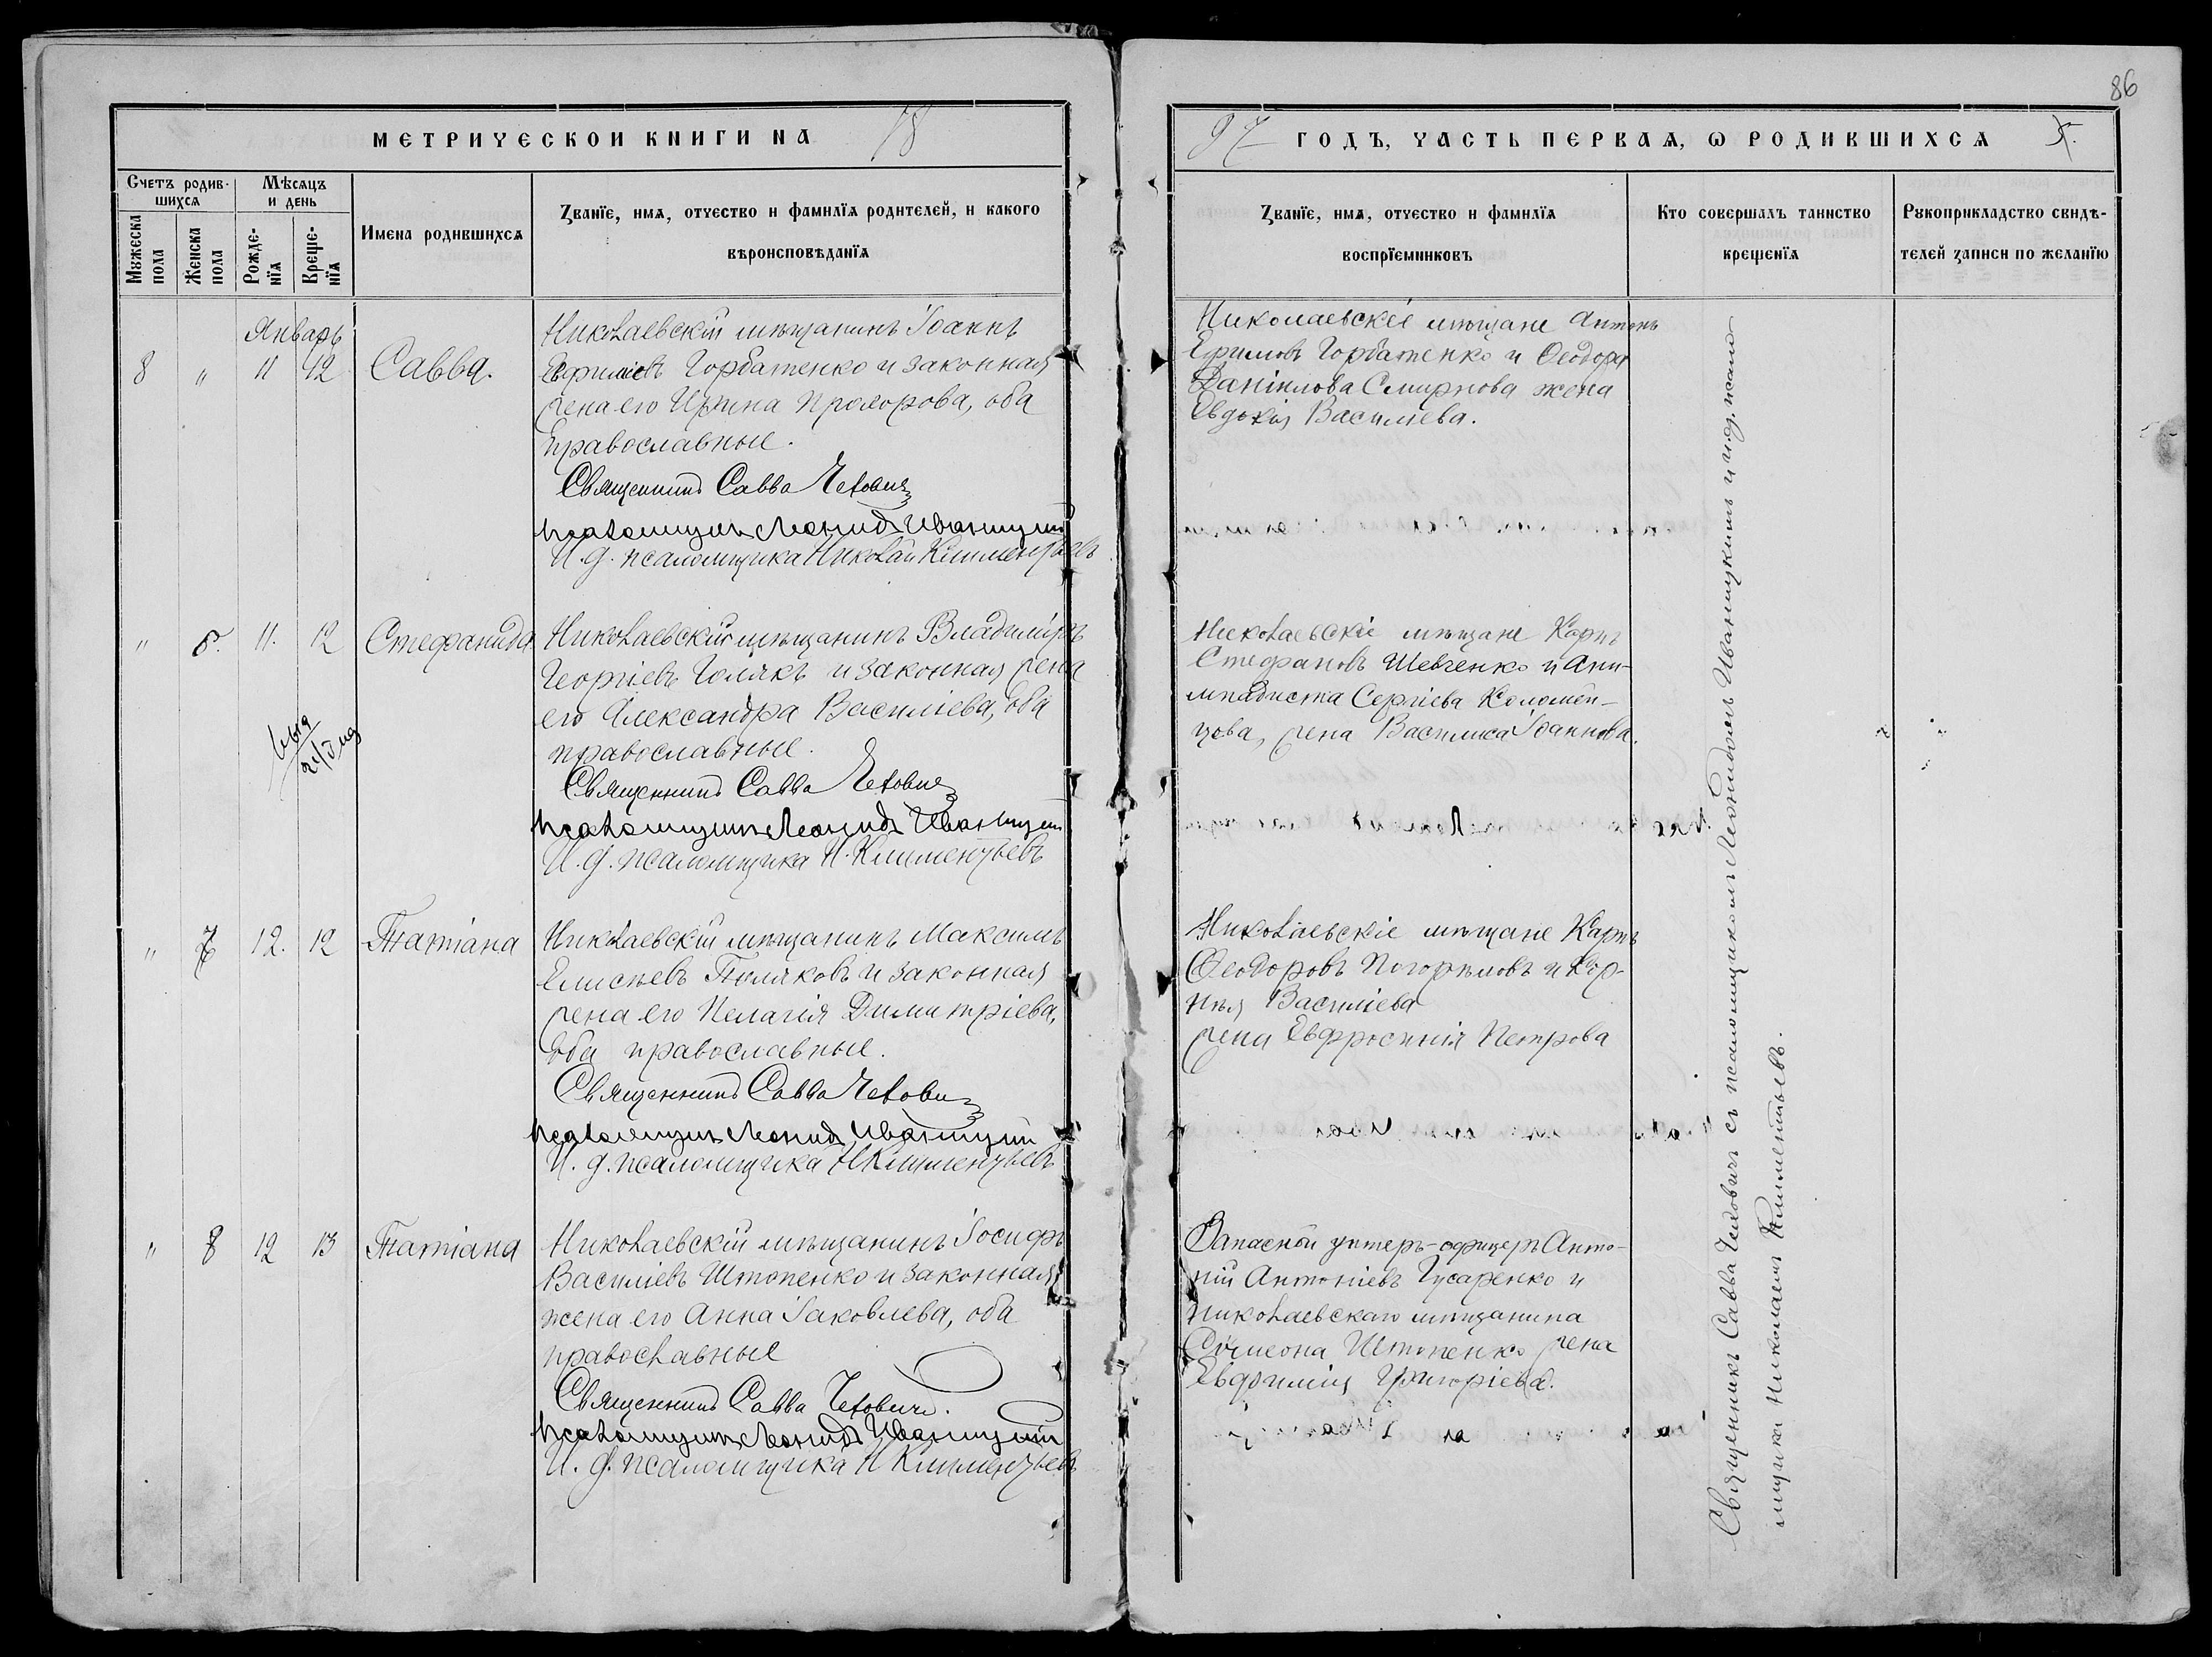 86
МЕТРИЧЕСКОЙ КНИГИ НА 18
97 ГОДЪ, ЧАСТЬ ПЕРВАЯ, Ѡ РОДИВШИХСЯ
Счетъ родив-
шихся
Мѣсяцъ
и день
Мужеска
пола
Женска
пола
Рожде-
нїя
Креще-
нїя
Имена родившихся
Званїе, имя, отчество и фамилїя родителей, и какого
вѣроисповѣданїя
Званїе, имя, отчество и фамилїя
воспрїемниковъ
Кто совершалъ таинство
крещенїя
Рукоприкладство свидѣ-
телей записи по желанїю
Январь
8 " 11 12 Савва.
Николаевскій мѣщанинъ Іоаннъ
Ефимовъ Горбатенко и законная
жена его Ирина Прохорова, оба
православные.
Священникъ Савва Чехович
Псаломщикъ Леонидъ Иваницкій
И. д. псаломщика Николай Климентьевъ
Николаевскіе мѣщане Антонъ
Ефимовъ Горбатенко и Ѳеодора
Даніилова Смирнова жена
Евдокія Василіева.
" 6. 11. 12 Стефанида
Николаевскій мѣщанинъ Владиміръ
Георгіевъ Голякъ и законная жена
его Александра Василіева, оба
православные.
Священникъ Савва Чехович
Псаломщикъ Леонидъ Иваницкій
И. д. псаломщика Н. Климентьевъ
Николаевскіе мѣщане Карпъ
Стефановъ Шевченко и Али-
мпадиста Сергіева Коломій-
цова, жена Василиса Іоаннова.
" 7 12. 12 Татіана
Николаевскій мѣщанинъ Максимъ
Елисѣевъ Поляковъ и законная
жена его Пелагія Димитріева,
оба православные.
Священникъ Савва Чехович
Псаломщикъ Леонидъ Иваницкій
И. д. псаломщика Н Климентьевъ
Николаевскіе мѣщане Карпъ
Ѳеодоровъ Погорѣловъ и Кор-
нѣя Василіева
жена Евфросинія Петрова
" 8 12 13 Татіана
Николаевскій мѣщанинъ Іосифъ
Василіевъ Штопенко и законная
жена его Анна Іаковлева, оба
православные
Священникъ Савва Чеховичъ.
Псаломщикъ Леонидъ Иваницкій
И. д. псаломщика Н Климентьевъ
Запасной унтеръ-офицеръ Анто-
ній Антоніевъ Гусаренко и
николаевскаго мѣщанина
Сѵмеона Штопенко жена
Евфимія Григоріева.
Священникъ Савва Чеховичъ съ псаломщикомъ Леонидомъ Иваницкимъ и и.д. псало-
мщика Николаемъ Климентьевъ.